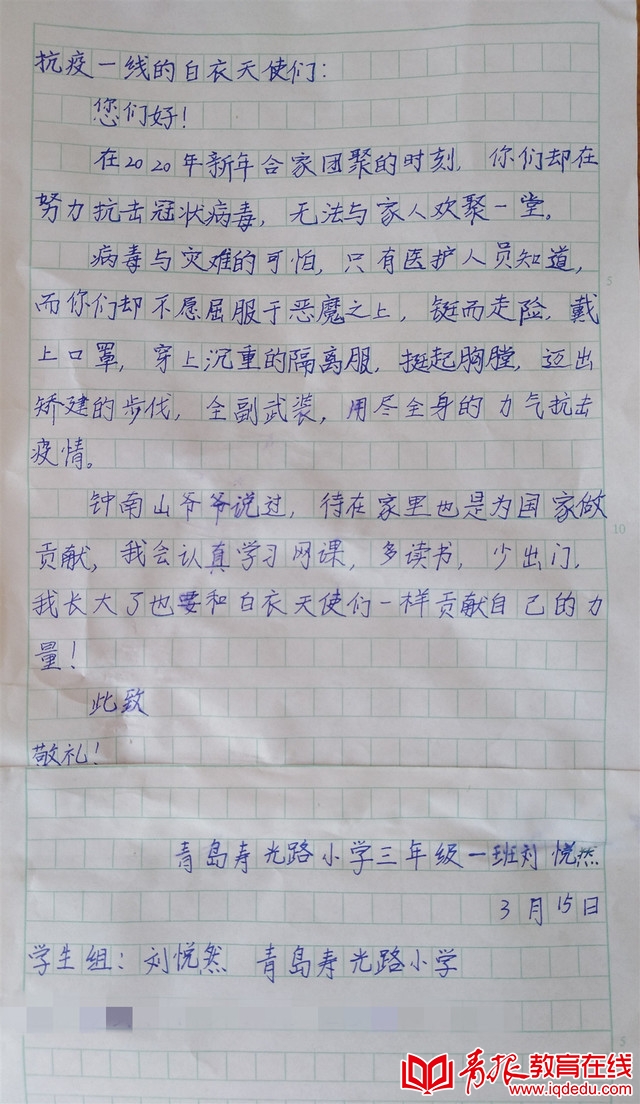 抗疫一线的白衣天使们：
您们好！
在2020年新年合家团聚的时刻，你们却在
努力抗击冠状病毒，无法与家人欢聚一堂。
病毒与灾难的可怕，只有医护人员知道，
而你们却不愿屈服于恶魔之上，铤而走险，戴
上口罩，穿上沉重的隔离服，挺起胸膛，迈出
矫建的步伐，全副武装，用尽全身的力气抗击
疫情。
钟南山爷爷说过，待在家里也是为国家做
贡献，我会认真学习网课，多读书，少出门。
我长大了也要和白衣天使们一样贡献自己的力
量！
此致
敬礼！
青岛寿光路小学三年级一班刘悦然
3月15日
学生组：刘悦然 青岛寿光路小学
5
10
5
青报教育在线
www.iqdedu.com